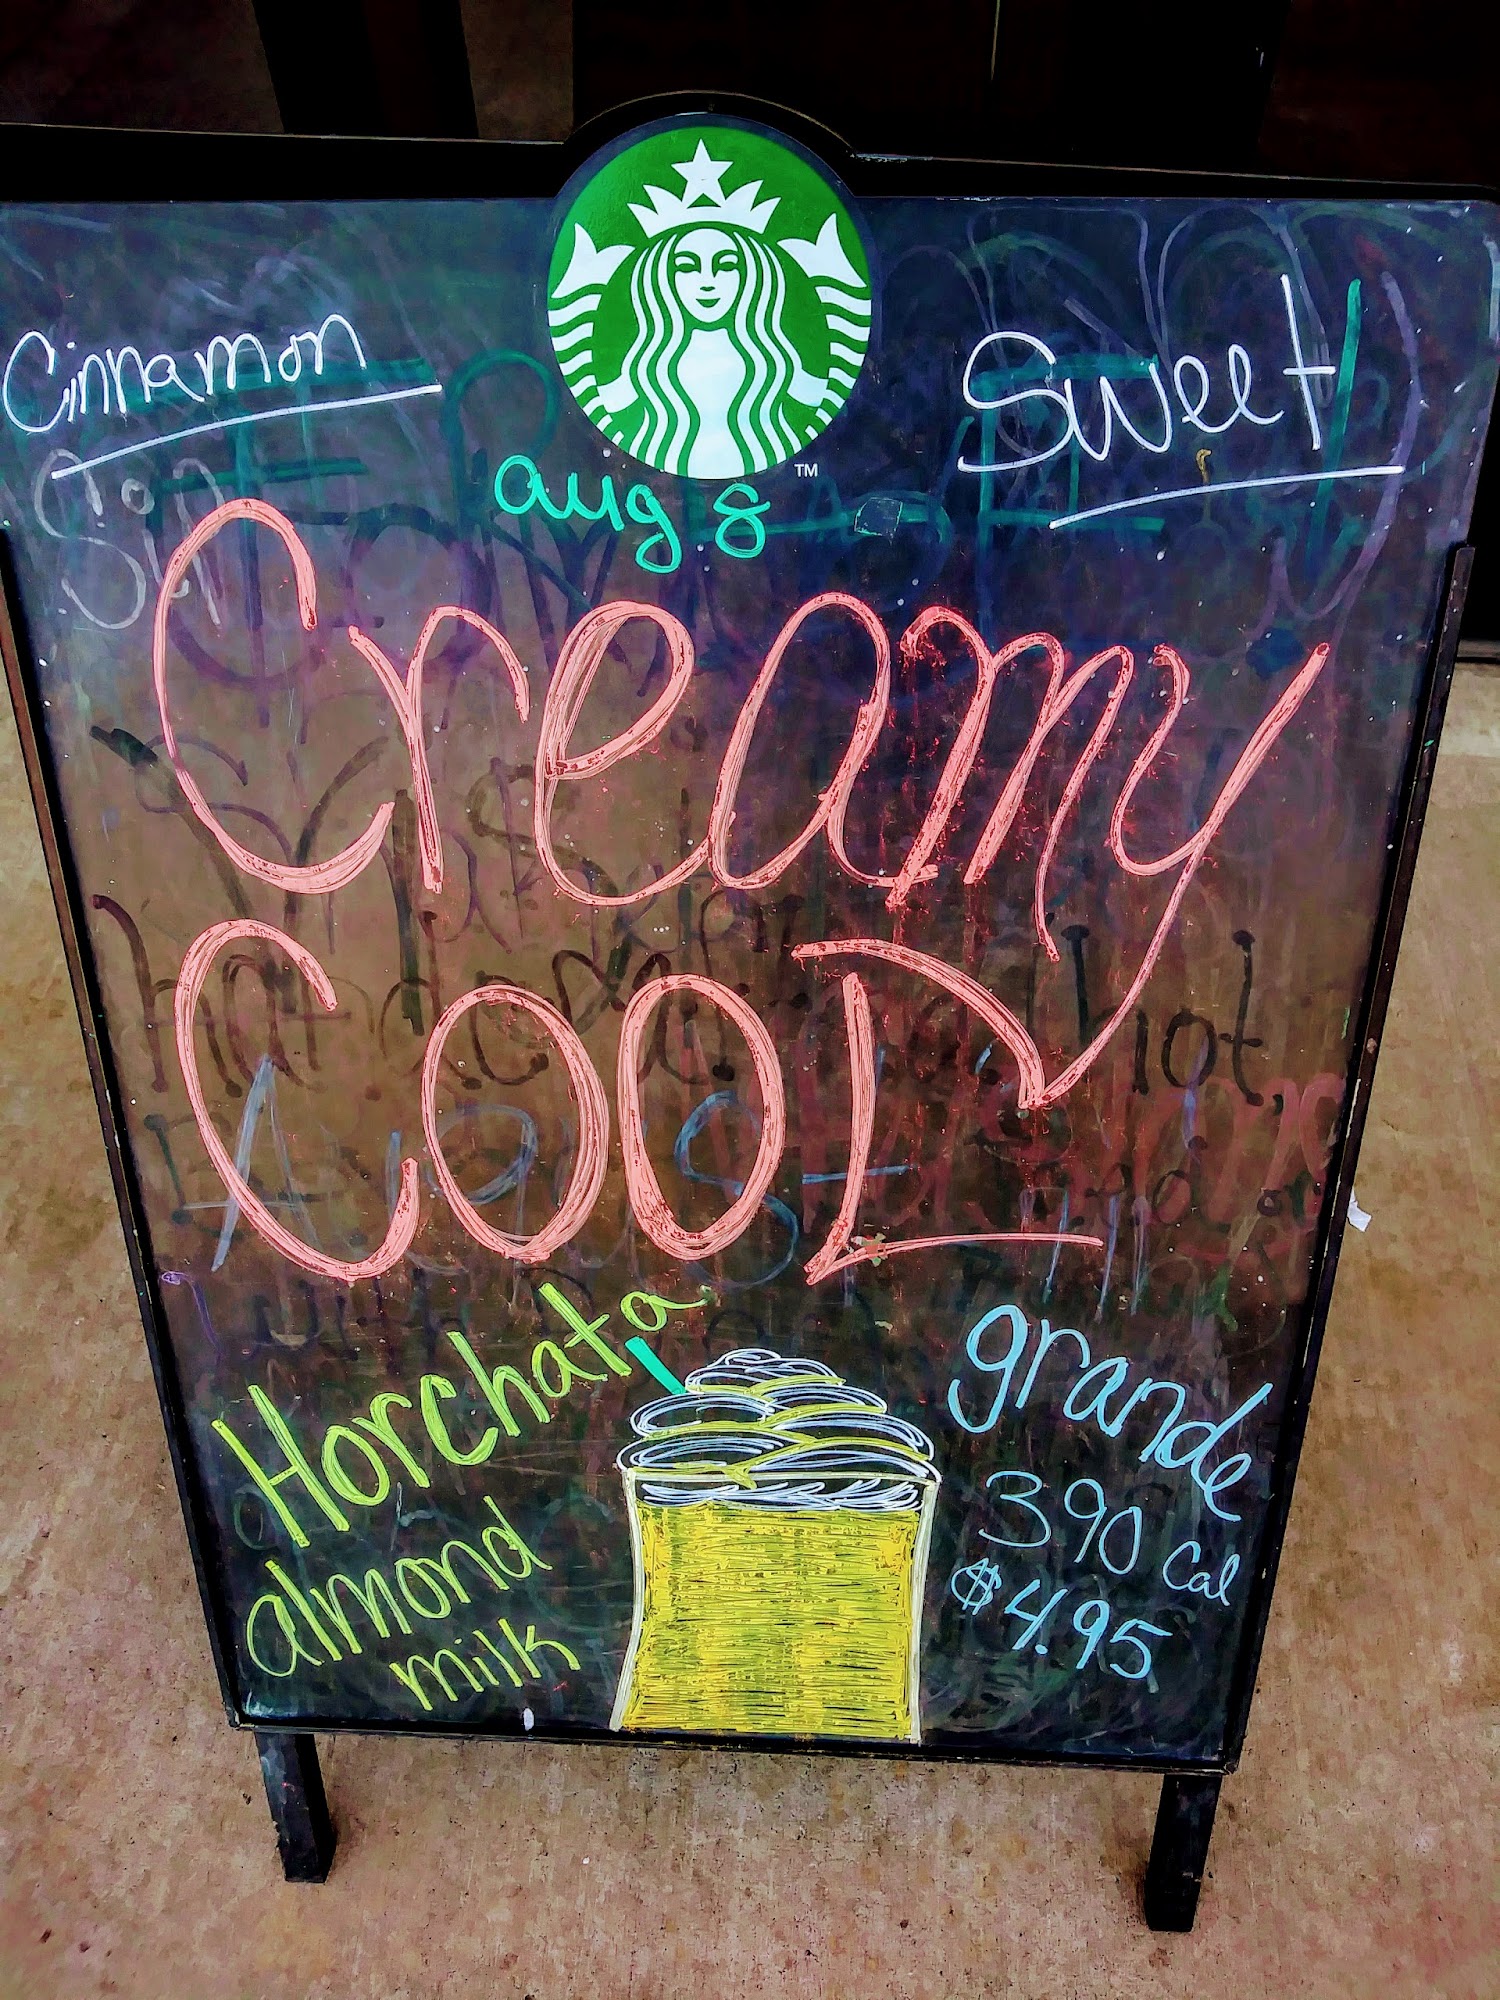 Cinnamon
Sweet
TM
aug 8
Creamy
COOL
Horchata
almond
milk
grande
390 Cal
$4.95